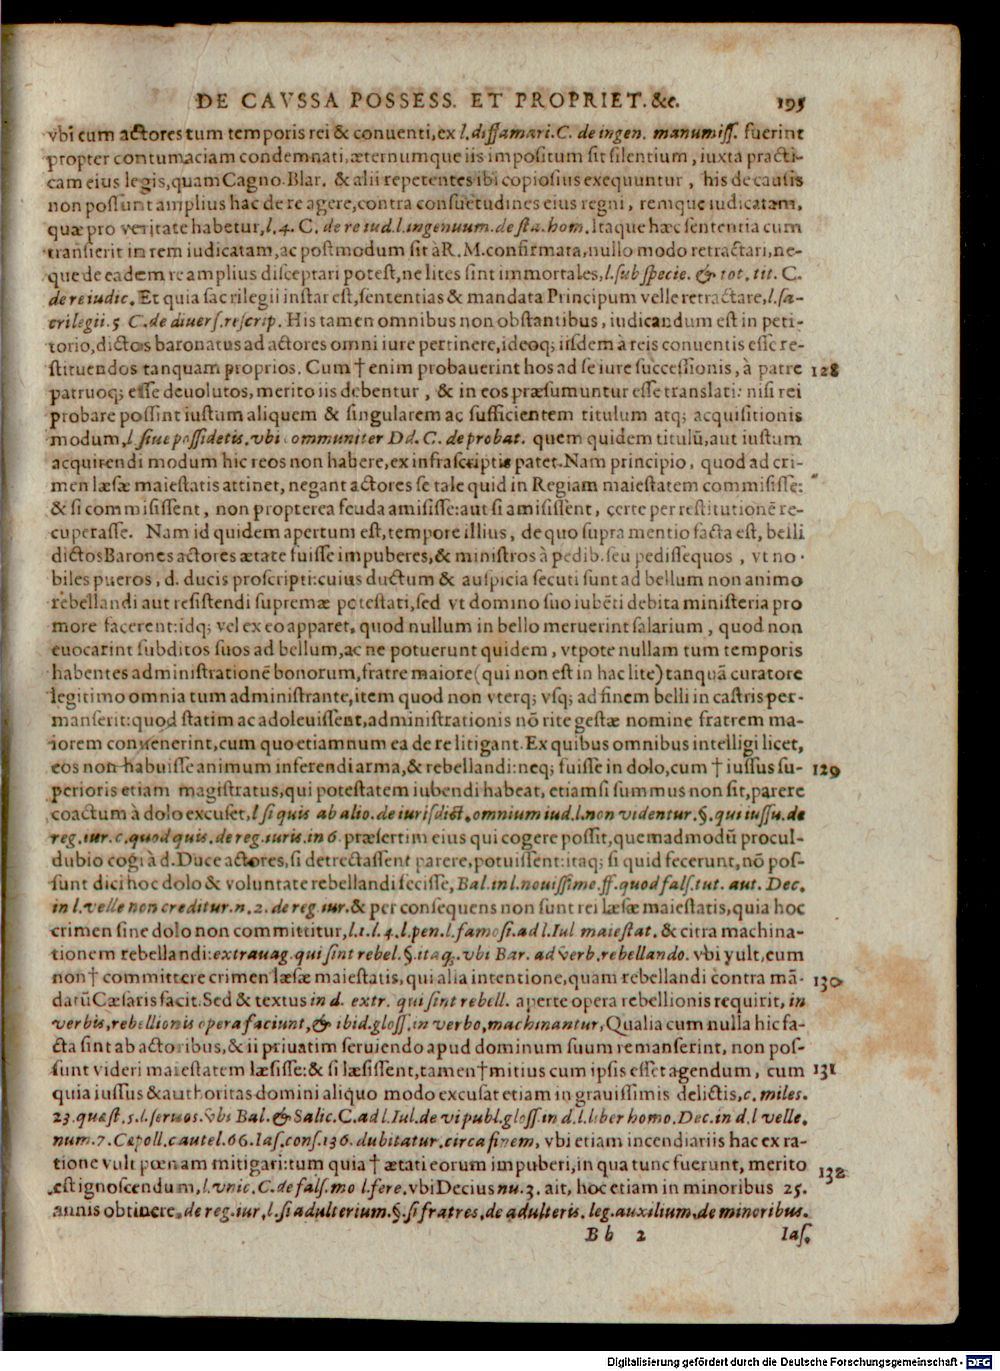 DE CAVSSA POSSESS. ET PROPRIET. &c. 195
vbi cum actores tum temporis rei & conuenti, ex l. diffamari. C. de ingen. manumiss. fuerint
propter contumaciam condemnati, æternumque iis impositum sit silentium, iuxta practi-
cam eius legis, quam Cagno. Blar. & alii repetentes ibi copiosius exequuntur, his de causis
non possunt amplius hac de re agere, contra consuetudines eius regni, remque iudicatam,
quæ pro veritate habetur, l. 4. C. de re iud. l. ingenuum. de sta. hom. Itaque hæc sententia cum
transierit in rem iudicatam, ac postmodum sit à R. M. confirmata, nullo modo retractari, ne-
que de eadem re amplius disceptari potest, ne lites sint immortales, l. sub specie. & tot. tit. C.
de re iudic. Et quia sacrilegii instar est, sententias & mandata Principum velle retractare, l. sa-
crilegii. 5 C. de diuers. rescrip. His tamen omnibus non obstantibus, iudicandum est in peti-
torio, dictos baronatus ad actores omni iure pertinere, ideoq; iisdem à reis conuentis esse re-
stituendos tanquam proprios. Cum † enim probauerint hos ad se iure successionis, à patre 128
patruoq; esse deuolutos, merito iis debentur, & in eos præsumuntur esse translati: nisi rei
probare possint iustum aliquem & singularem ac sufficientem titulum atq; acquisitionis
modum, l siue possidetis. vbi communiter Dd. C. de probat. quem quidem titulū, aut iustum
acquirendi modum hic reos non habere, ex infrascriptis patet. Nam principio, quod ad cri-
men læsæ maiestatis attinet, negant actores se tale quid in Regiam maiestatem commisisse:
& si commisissent, non propterea feuda amisisse: aut si amisissent, certe per restitutionē re-
cuperasse. Nam id quidem apertum est, tempore illius, de quo supra mentio facta est, belli
dictos Barones actores ætate fuisse impuberes, & ministros à pedib. seu pedissequos, vt no-
biles pueros, d. ducis proscripti: cuius ductum & auspicia secuti sunt ad bellum non animo
rebellandi aut resistendi supremæ potestati, sed vt domino suo iubēti debita ministeria pro
more facerent: idq; vel ex eo apparet, quod nullum in bello meruerint salarium, quod non
euocarint subditos suos ad bellum, ac ne potuerunt quidem, vtpote nullam tum temporis
habentes administrationē bonorum, fratre maiore (qui non est in hac lite) tanquā curatore
legitimo omnia tum administrante, item quod non vterq; vsq; ad finem belli in castris per-
manserit: quod statim ac adoleuissent, administrationis nō rite gestæ nomine fratrem ma-
iorem conuenerint, cum quo etiamnum ea de re litigant. Ex quibus omnibus intelligi licet,
eos non habuisse animum inferendi arma, & rebellandi: neq; fuisse in dolo, cum † iussus su- 129
perioris etiam magistratus, qui potestatem iubendi habeat, etiamsi summus non sit, parere
coactum à dolo excuset, l si quis ab alio. de iurisdict. omnium iud. l. non videntur. §. qui iussu. de
reg. iur. c. quod quis. de reg. iuris. in 6. præsertim eius qui cogere possit, quemadmodū procul-
dubio cogi à d. Duce actores, si detrectassent parere, potuissent: itaq; si quid fecerunt, nō pos-
sunt dici hoc dolo & voluntate rebellandi fecisse, Bal. in l. nouissime. ff. quod fals. tut. aut. Dec.
in l. velle non creditur. n. 2. de reg. iur. & per consequens non sunt rei læsæ maiestatis, quia hoc
crimen sine dolo non committitur, l. 1. l. 4. l. pen. l. famosi. ad l. Iul maiestat. & citra machina-
tionem rebellandi: extrauag. qui sint rebel. §. itaq;. vbi Bar. ad verb. rebellando. vbi vult, eum
non † committere crimen læsæ maiestatis, qui alia intentione, quam rebellandi contra mā- 130
datū Cæsaris facit. Sed & textus in d. extr. qui sint rebell. aperte opera rebellionis requirit, in
verbis, rebellionis opera faciunt, & ibid. gloss. in verbo, machinantur, Qualia cum nulla hic fa-
cta sint ab actoribus, & ii priuatim seruiendo apud dominum suum remanserint, non pos-
sunt videri maiestatem læsisse: & si læsissent, tamen † mitius cum ipsis esset agendum, cum 131
quia iussus & authoritas domini aliquo modo excusat etiam in grauissimis delictis, c. miles.
23. quæst. 5. l. seruos. vbi Bal. & Salic. C. ad l. Iul. de vi publ. gloss. in d. l. liber homo. Dec. in d. l velle.
num. 7. Cepoll. cautel. 66. Ias. cons. 136. dubitatur. circa finem, vbi etiam incendiariis hac ex ra-
tione vult pœnam mitigari: tum quia † ætati eorum impuberi, in qua tunc fuerunt, merito 132
est ignoscendum, l. vnic. C. de fals. mo l. fere. vbi Decius nu. 3. ait, hoc etiam in minoribus 25.
annis obtinere. de reg. iur, l. si adulterium. §. si fratres. de adulteris. leg. auxilium. de minoribus.
B b 2 Ias.
Digitalisierung gefördert durch die Deutsche Forschungsgemeinschaft - DFG